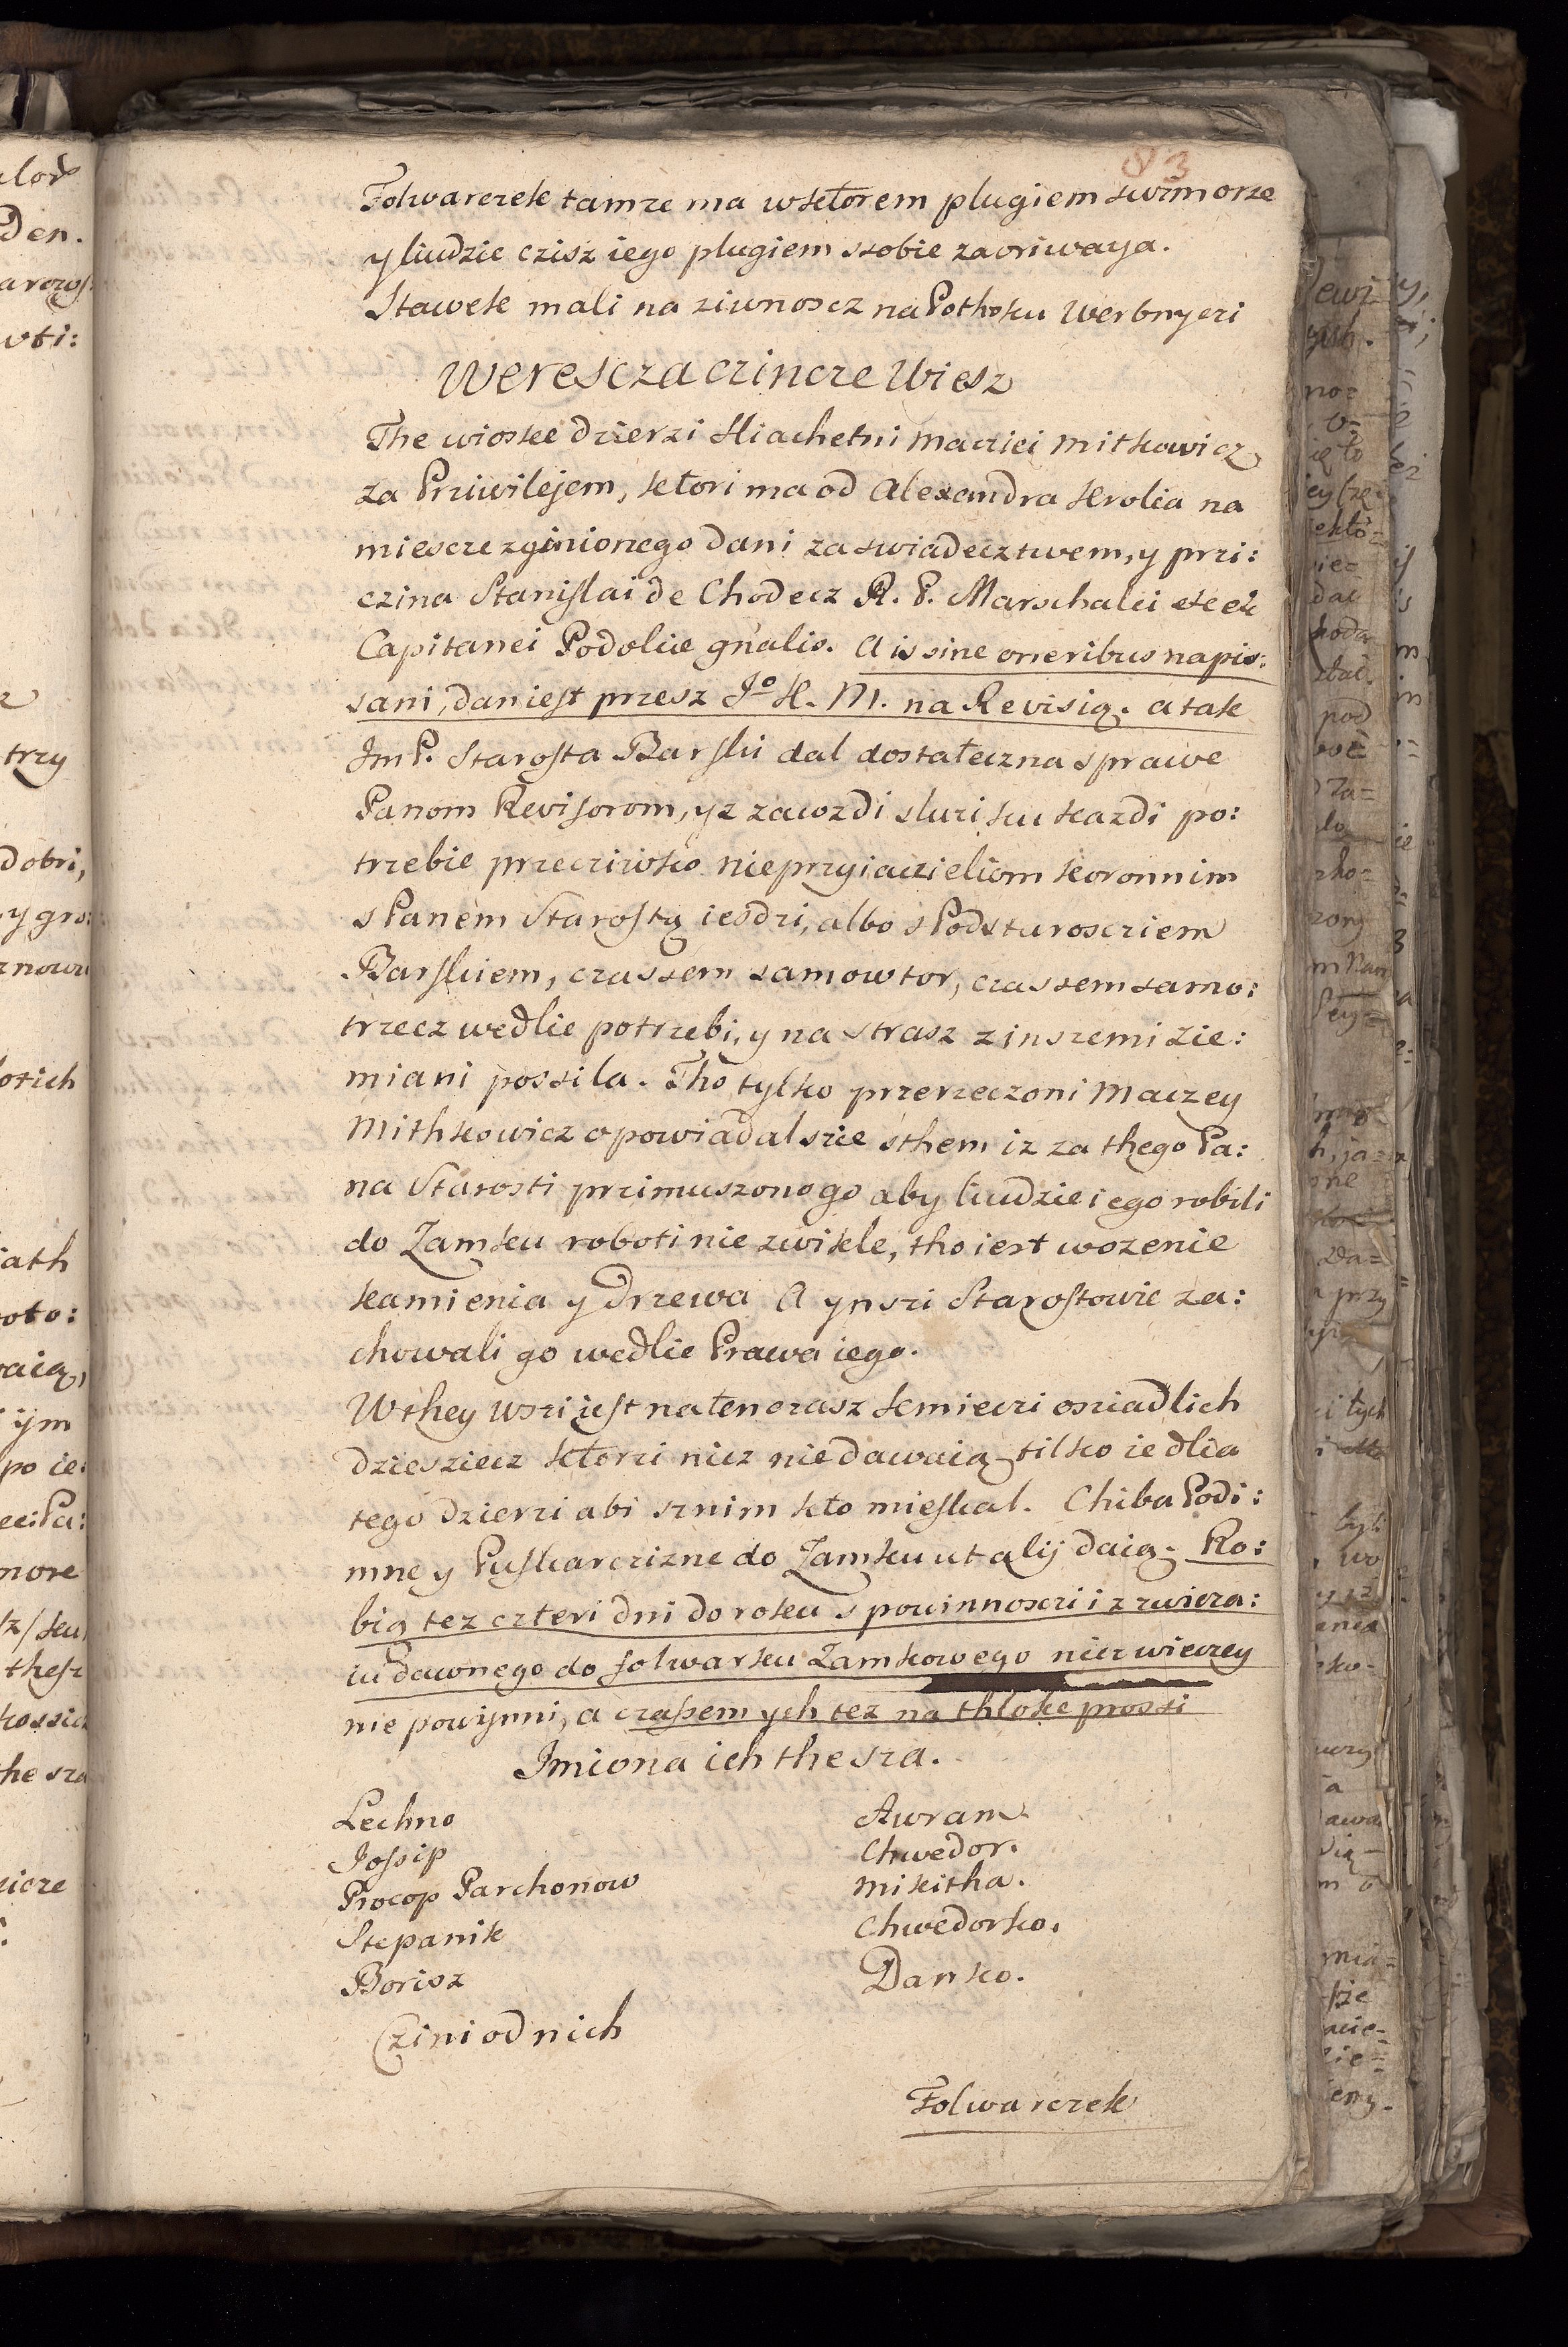 83
Folwarczek tamze ma wktorem plugiem swim orze
y liudzie czisz iego plugiem ssobie zaoriwaya.
Stawek mali na ziwnoscz na Pothoku Werbnyczi
Weresczaczincze Wiesz
The wioske dzierzi Sliachetni Macziei Mitkowicz
za Prziwilejem, ktori ma od Alexandra Krolia na
miescze zginionego dani za swiadecztwem, y przi:
czina Stanislai de Chodecz R. P. Marschalci etc etc
Capitanei Podolie gnalis. A is sine oneribus napis:
sani, dan iest przesz Jo K. M. na Revisią. a tak
Jm P. Starosta Barski dal dostateczna sprawe
Panom Revisorom, yz zawzdi sluzi ku kazdi po:
trzebie przecziwko nieprzyiaczieliom koronnim
s Panem Starostą iesdzi, albo s Podstarosciem
Barskiem, czassem samowtor, czassem samo:
trzecz wedlie potrzebi, y na strasz z inszemi zie:
miani possila. Tho tylko przerzeczoni Maczey
Mithkowicz opowiadal szie sthem iz za thego Pa:
na Starosti przimuszonogo aby liudzie iego robili
do Zamku roboti nie zwikle, tho iest wozenie
kamienia y Drzewa A ynszi Starostowie za:
chowali go wedlie Prawa iego.
W they wszi iest na ten czasz kmieczi osziadlich
dziesziecz ktorzi nicz nie dawaią tilko ie dlia
tego dzierzi abi sznim kto mieskal. Chiba Podi:
mne y Puskarczizne do Zamku ut alij daią. Ro:
bią tez czteri dni do roku s powinnosczi i z zwicza:
iu dawnego do folwarku Zamkowego nicz wieczey
nie powynni, a czasem ych tez na thloke prossi
Jmiona ich the sza.
Lechno
Jossip
Procop Parchonow
Stepanik
Borisz
Awram
Chwedor.
Mikitha.
Chwedorko.
Danko.
Czini od nich
Folwarczek